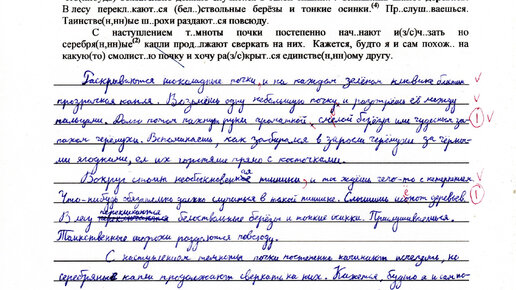 В лесу перекл..кают..ся (бел..)ствольные берёзы и тонкие осинки.(4) Пр..слуш..ваешься.
Таинстве(н,нн)ые ш..рохи раздают..ся повсюду.
С наступлением т..мноты почки постепенно нач..нают и(з/с)ч..зать но
серебря(н,нн)ые(2) капли прод..лжают сверкать на них. Кажется, будто я и сам похож.. на
какую(то) смолист..ю почку и хочу ра(з/с)крыт..ся единстве(н,нн)ому другу.
Раскрываются шоколадные почки, и на каждом зелёном клювике
прозрачная капля. Возьмёшь одну небольшую почку, разотрёшь её между
пальцами. Долго потом пахнут руки ароматной смолой берёзы или чудным за-
пахом черемухи. Вспоминаешь, как забирался в заросли черёмухи за черны-
ми ягодками, ел их горстями прямо с косточками.
Вокруг стоит необыкновенная тишина, и ты ждёшь чего-то с нетерпением.
Что-нибудь обязательно должно случиться в такой тишине. Слышишь шёпот деревьев.
В лесу перекликаются белоствольные берёзы и тонкие осинки. Прислушиваешься.
Таинственные шорохи раздаются повсюду.
С наступлением темноты почки постепенно начинают исчезать, но
серебряные капли продолжают сверкать на них. Кажется, будто я и сам по-